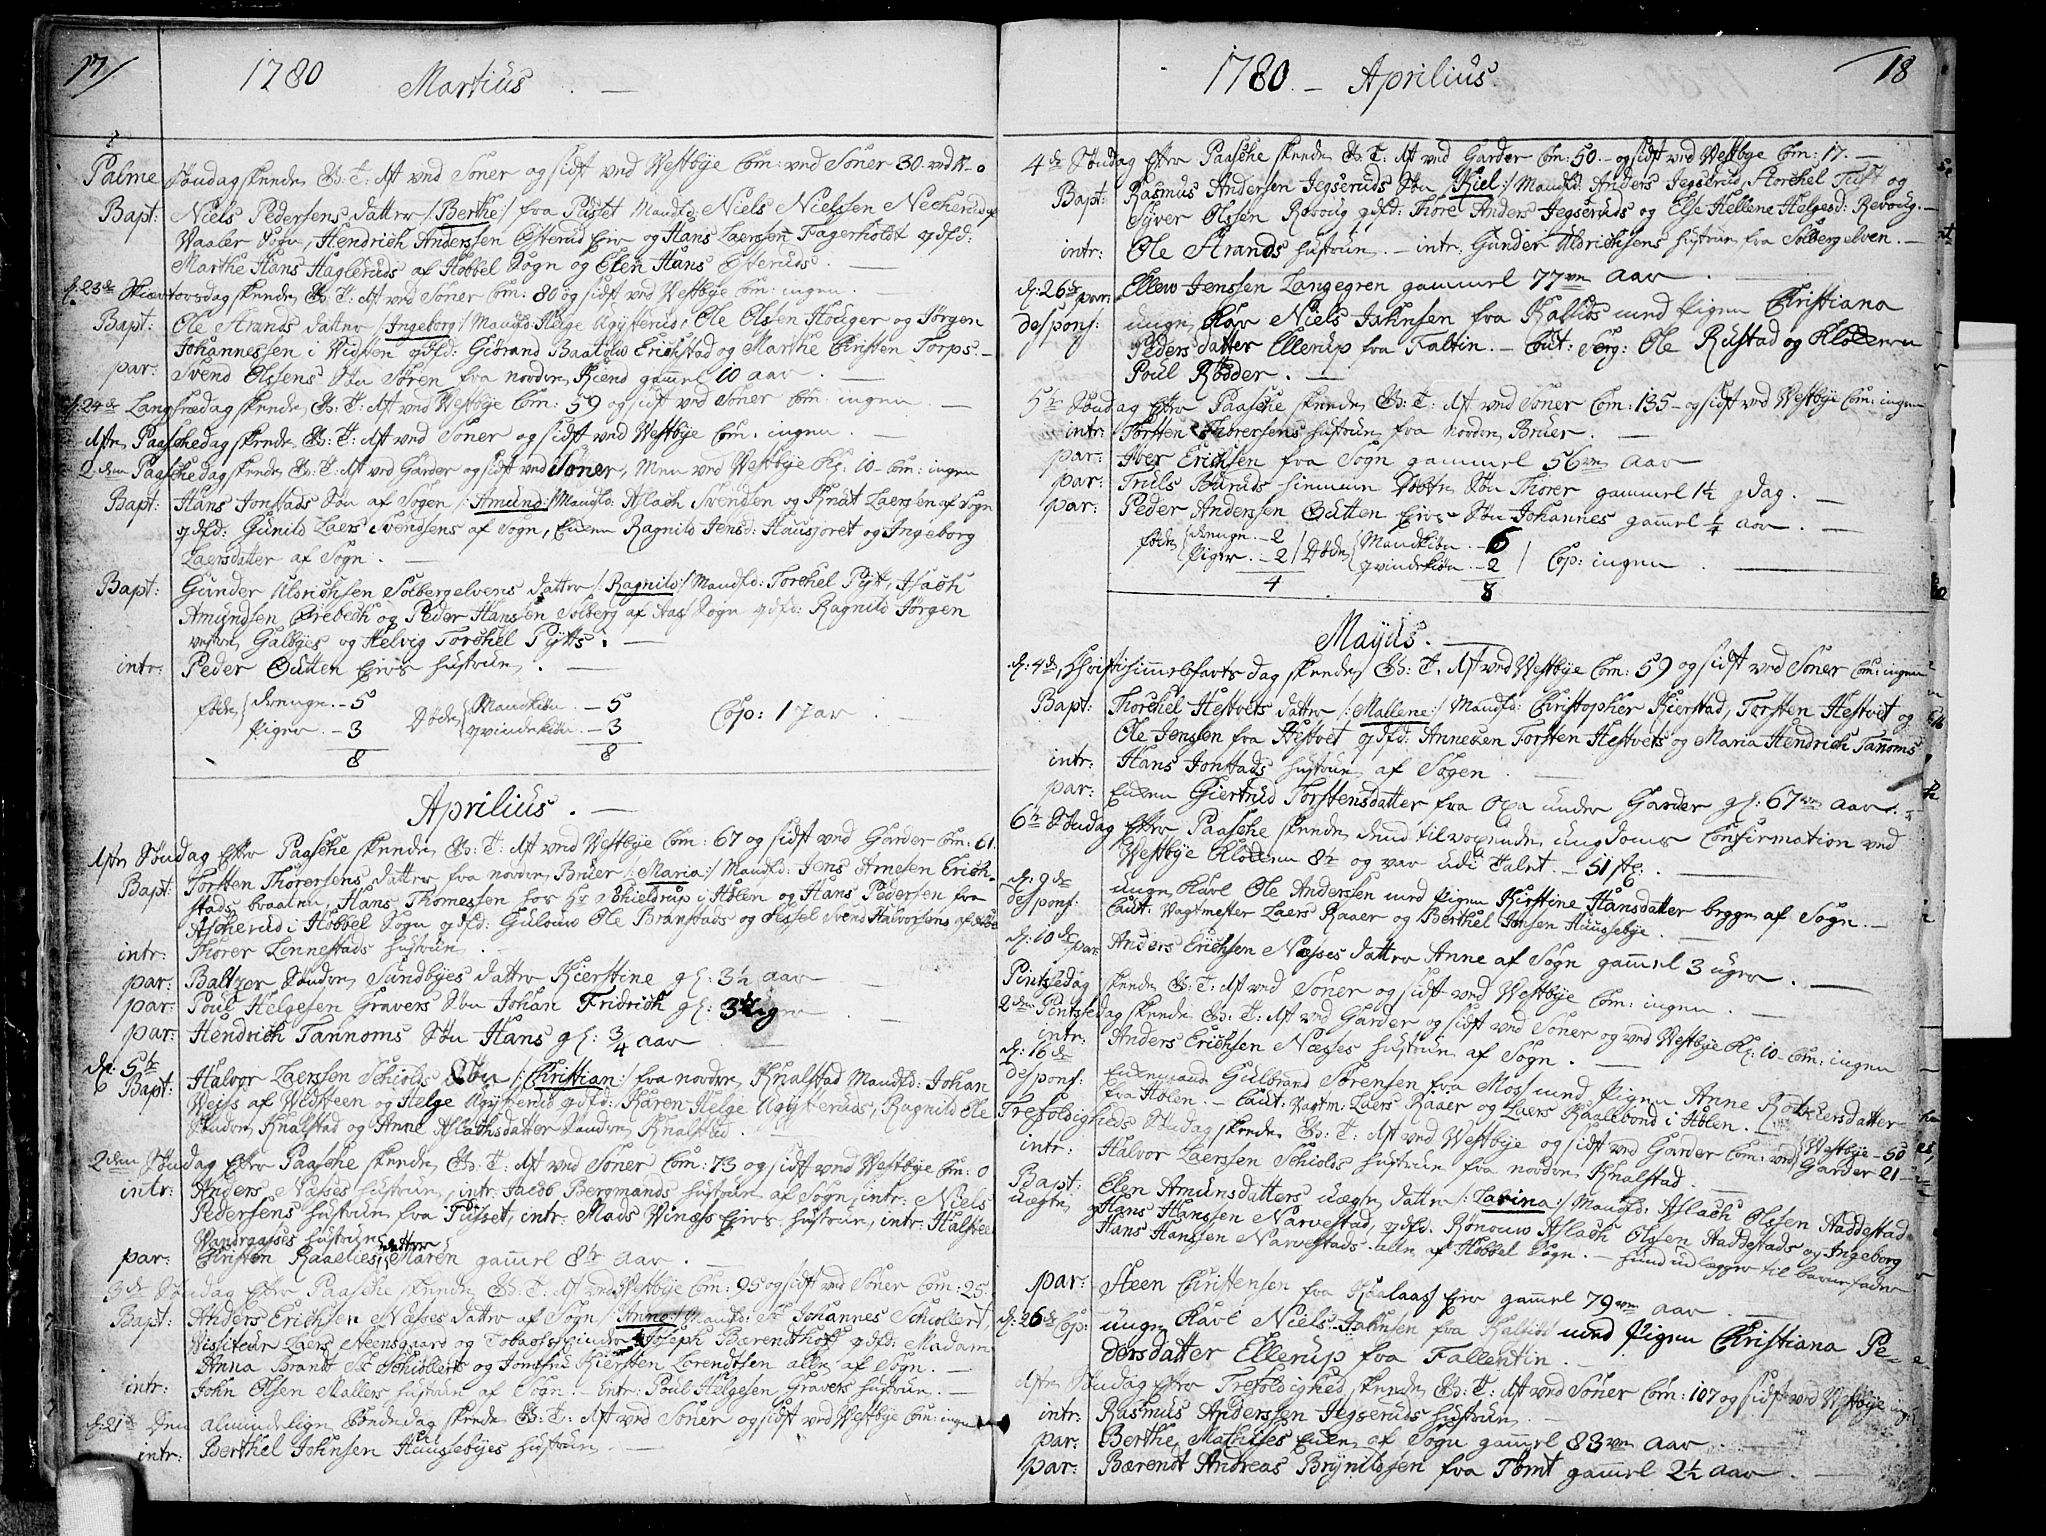 17/
1780 Martius. —
Palme Søndag skeede G: T: 1st ved Soner og sidst ved Westbye Com: ved Soner 30 ved W-0
Bapt: Niels Pedersens datter /:Berthe:/ fra Tusset Mandfd: Niels Nielssen Necherud af
Vaaler Sogn, Hendrich Anderssen Østerud Eier og Hans Laerssen Fagerholdt qdfd:
Marthe Hans Hagleruds af Hobbel Sogn og Elen Hans Østeruds. —
d: 23de Skiertorsdag skeede G: T: 1st ved Soner Com: 80 og sidst ved Westbye Com: ingen. —
Bapt: Ole Strands datter /:Ingeborg:/ Mandfd: Helge Agysterud, Ole Olssen Houger og Jørgen
Johannessen i Vidsten qdfd: Giørand Baatolw Erichstad og Marthe Christen Torps. —
par: Svend Olssens Søn Søren fra nordre Kiend gamel 10 aar. —
d: 24de Langfredag skeede G: T: 1st ved Westbye Com: 59 og sidst ved Soner Com: ingen —
1ste Paaschedag skeede G: T: 1st ved Soner og sidst ved Westbye Com: ingen. —
2den Paaschedag skeede G: T: 1st ved Garder og sidst ved Soner, Men ved Westbye Kl: 10 Com: ingen
Bapt: Hans Jonstads Søn af Sogen /:Amund:/ Mandfd: Aslach Svendsen og Knut Laerssen af Sogn
qdfd: Gunild Laers Svendsens af Sogn, Enken Ragnild Jensd: Hausjoret og Ingeborg
Laersdatter af Sogn. —
Bapt: Gunder Uldrichsen Solbergelvens datter /:Ragnild:/ Mandfd: Torchel Pytt, Aslach
Amundsen Krebech og Peder Hanssen Solberg af Aas Sogn qdfd: Ragnild Jørgen
vestre Galbyes og Helvig Torchel Pytts. —
intr: Peder Gutten Eies hustrue. —
føde { drenge. - 5 Døde { Mandkiøn - 5 Cop: 1 Par. —
Piger — 3 qvindekiøn. - 3
8 8
Aprilius. —
1ste Søndag Efter Paasche skeede G: T: 1st ved Westbye Com: 67 og sidst ved Garder Com: 61.
Bapt: Torsten Thorersens datter fra nordre Bruer /:Maria:/ Mandfd: Jens Arnesen Erich-
stads braaten, Hans Thomessen hos Hr Schieldrup i Hølen og Hans Pedersen fra
Ascherud i Hobbel Sogn qdfd: Gulouw Ole Branstads og Sessel Svend Halvorsens af
intr: Thorer Linnestads hustrue.
par: Baltzer Søndre Sundbyes datter Kierstine gl: 3½ aar —
par: Poul Helgesen Gravers Søn Johan Fridrich gl: 3 Uger —
par: Hendrich Tannoms Søn Hans gl: ¾ aar —
d: 5te
Bapt: Halvor Laerssen Schiolds Søn /:Christian:/ fra nordre Knalstad Mandfd: Johan
Weiss af Vidsteen og Helge Agysterud qdfd: Karen Helge Agysteruds, Ragnild Ole
Søndre Knalstad og Anne Aslachsdatter Søndre Knalstad. —
2den Søndag Efter Paasche skeede G: T: 1st ved Soner Com: 73 og sidst ved Westbye Com: 0
intr: Anders Næsses hustrue, intr: Jacob Bergmands hustrue af Sogn, intr: Niels
Pedersens hustrue fra Tusset, intr: Mads Vines Eies hustrue, intr: Halsteen
Vandgasses hustrue
par: Christen Raaelies datter Maren gamel 8½ aar. —
3de Søndag Efter Paasche skeede G: T: 1st ved Westbye Com: 95 og sidst ved Soner Com: 25.
Bapt: Anders Erichsen Næsses datter af Sogn /:Anne:/ Mandfd: Sr Johannes Schiollert,
Vissiteur Laers Steensgaard og Tobaesspinder Joseph Bærendthoff qdfd: Madam
Anna Brandt Sr Schiolert og Jomfrue Kiersten Lorendtsen alle af Sogn. —
intr: John Olsen Mallers hustrue af Sogn. — intr: Poul Helgesen Gravers hustrue. —
d: 21de Den almindelige Bededag skeede G: T: 1st ved Soner og sidst ved Westbye Com: ingen
intr: Berthel Johnsen Huussebyes hustrue. —
1780. — Aprilius.
18
4de Søndag Efter Paasche skeede G: T: 1st ved Garder Com: 50. — og sidst ved Westbye Com: 17. —
Bapt: Rasmus Andersen Jegseruds Søn /:Kiel:/ Mandfd: Anders Jegserud, Storchel Tuft og
Syver Olssen Revoug qdfd: Thore Anders Jegseruds og Else Hellene Helgesd: Revoug. —
intr: Ole Strands hustrue. — intr: Gunder Uldrichsens hustrue fra Solbergelven. —
d: 26de par: Ellew Jenssen Langegren gammel 77ve Aar. —
desponf: unge Karl Niels Johnsen fra Kallies med Pigen Christiana
Peders datter Ellerup fra Faltin. — Caut: Serg: Ole Rustad og Klocheren
Poul Rødder. —
5te Søndag Efter Paasche skeede G: T: 1st ved Soner Com: 135 — og sidst ved Westbye Com: ingen
intr: Torsten Thorersens hustrue fra nordre Bruer. —
par: Iver Erichsen fra Sogn gammel 56ve Aar —
par: Truls Buruds hiemme døbte Søn Thorer gammel 1½ dag. —
par: Peder Anderssen Gutten Eies Søn Johannes gamel ¼ aar. —
føde { drenge. - 2 / Døde { Mandkiøn. - 6 / Cop: ingen. —
Piger. - 2 qvindekiøn. - 2
4 8
Mayus. —
d: 4de, Christi himmelfarts dag skeede G: T: 1st ved Westbye Com: 59 og sidst ved Soner Com: ingen
Bapt: Thorchel Hestvets datter /:Mallene:/ Mandfd: Christopher Kierstad, Torsten Hestvet og
Ole Jenssen fra Hestvet qdfd: Anneken Torsten Hestvets og Maria Hendrich Tannoms
intr: Hans Jonstads hustrue af Sogen. —
par: Enken Giertrud Torstensdatter fra Oxa under Garder gl: 67ve aar. —
6te Søndag Efter Paasche skeede dend tilvoxende ungdoms Confirmation ved
Westbye Klochen 8½ og var udi Talet — 51 stk: —
d: 9de desponf: unge Karl Ole Anderssen med Pigen Kirstine Hansdatter begge af Sogn. —
Caut: Vagtmester Laers Raaer og Berthel Jonsen Huussebye. —
d: 10de par: Anders Erichsen Næsses datter Anne af Sogn gamel 3 uger. —
Pintsedag skeede G: T: 1st ved Soner og sidst ved Westbye Com: ingen. —
2den Pintsedag skeede G: T: 1st ved Garder og sidst ved Soner og ved Westbye Kl: 10 — Com: ingen
intr: Anders Erichsen Næsses hustrue af Sogn. —
d: 16de desponf: Enkemand Gulbrand Sørensen fra Moss med Pigen Anne Rotkiersdatter
fra Hølen. — Caut: Vagtm: Laers Raaer og Laers Kaalebond i Hølen. —
Trefoldigheds Søndag skeede G: T: 1st ved Westbye og sidst ved Garder Com: ved { Westbye — 50 Garder 21 —
intr: Halvor Laerssen Schiolds hustrue fra nordre Knalstad. —
Bapt: uægte Elen Amunsdatters uægte datter /:Larina:/ Mandfd: Aslach Olssen Haddestad
og Hans Hanssen Narvestad, qdfd: Rønouw Aslach Olssen Haddestads og Ingeborg
Hans Hanssen Narvestads. alle af Hobbel Sogn. — hun udlegger til barnefader
par: Steen Christensen fra Kaalaas Eie gammel 79ve aar —
d: 26de Cop: unge Karl Niels Johnsen fra Kallies med Pigen Christiana Pe-
dersdatter Ellerup fra Fallentin. —
1ste Søndag Efter Trefoldighed skeede G: T: 1st ved Soner Com: 107 og sidst ved Westbye ing:
intr: Rasmus Anderssen Jegseruds hustrue. —
par: Berthe Mathises Enke af Sogn gammel 83ve Aar —
par: Bærendt Andreas Brynildssen fra Tømt gamel 2½ aar. —